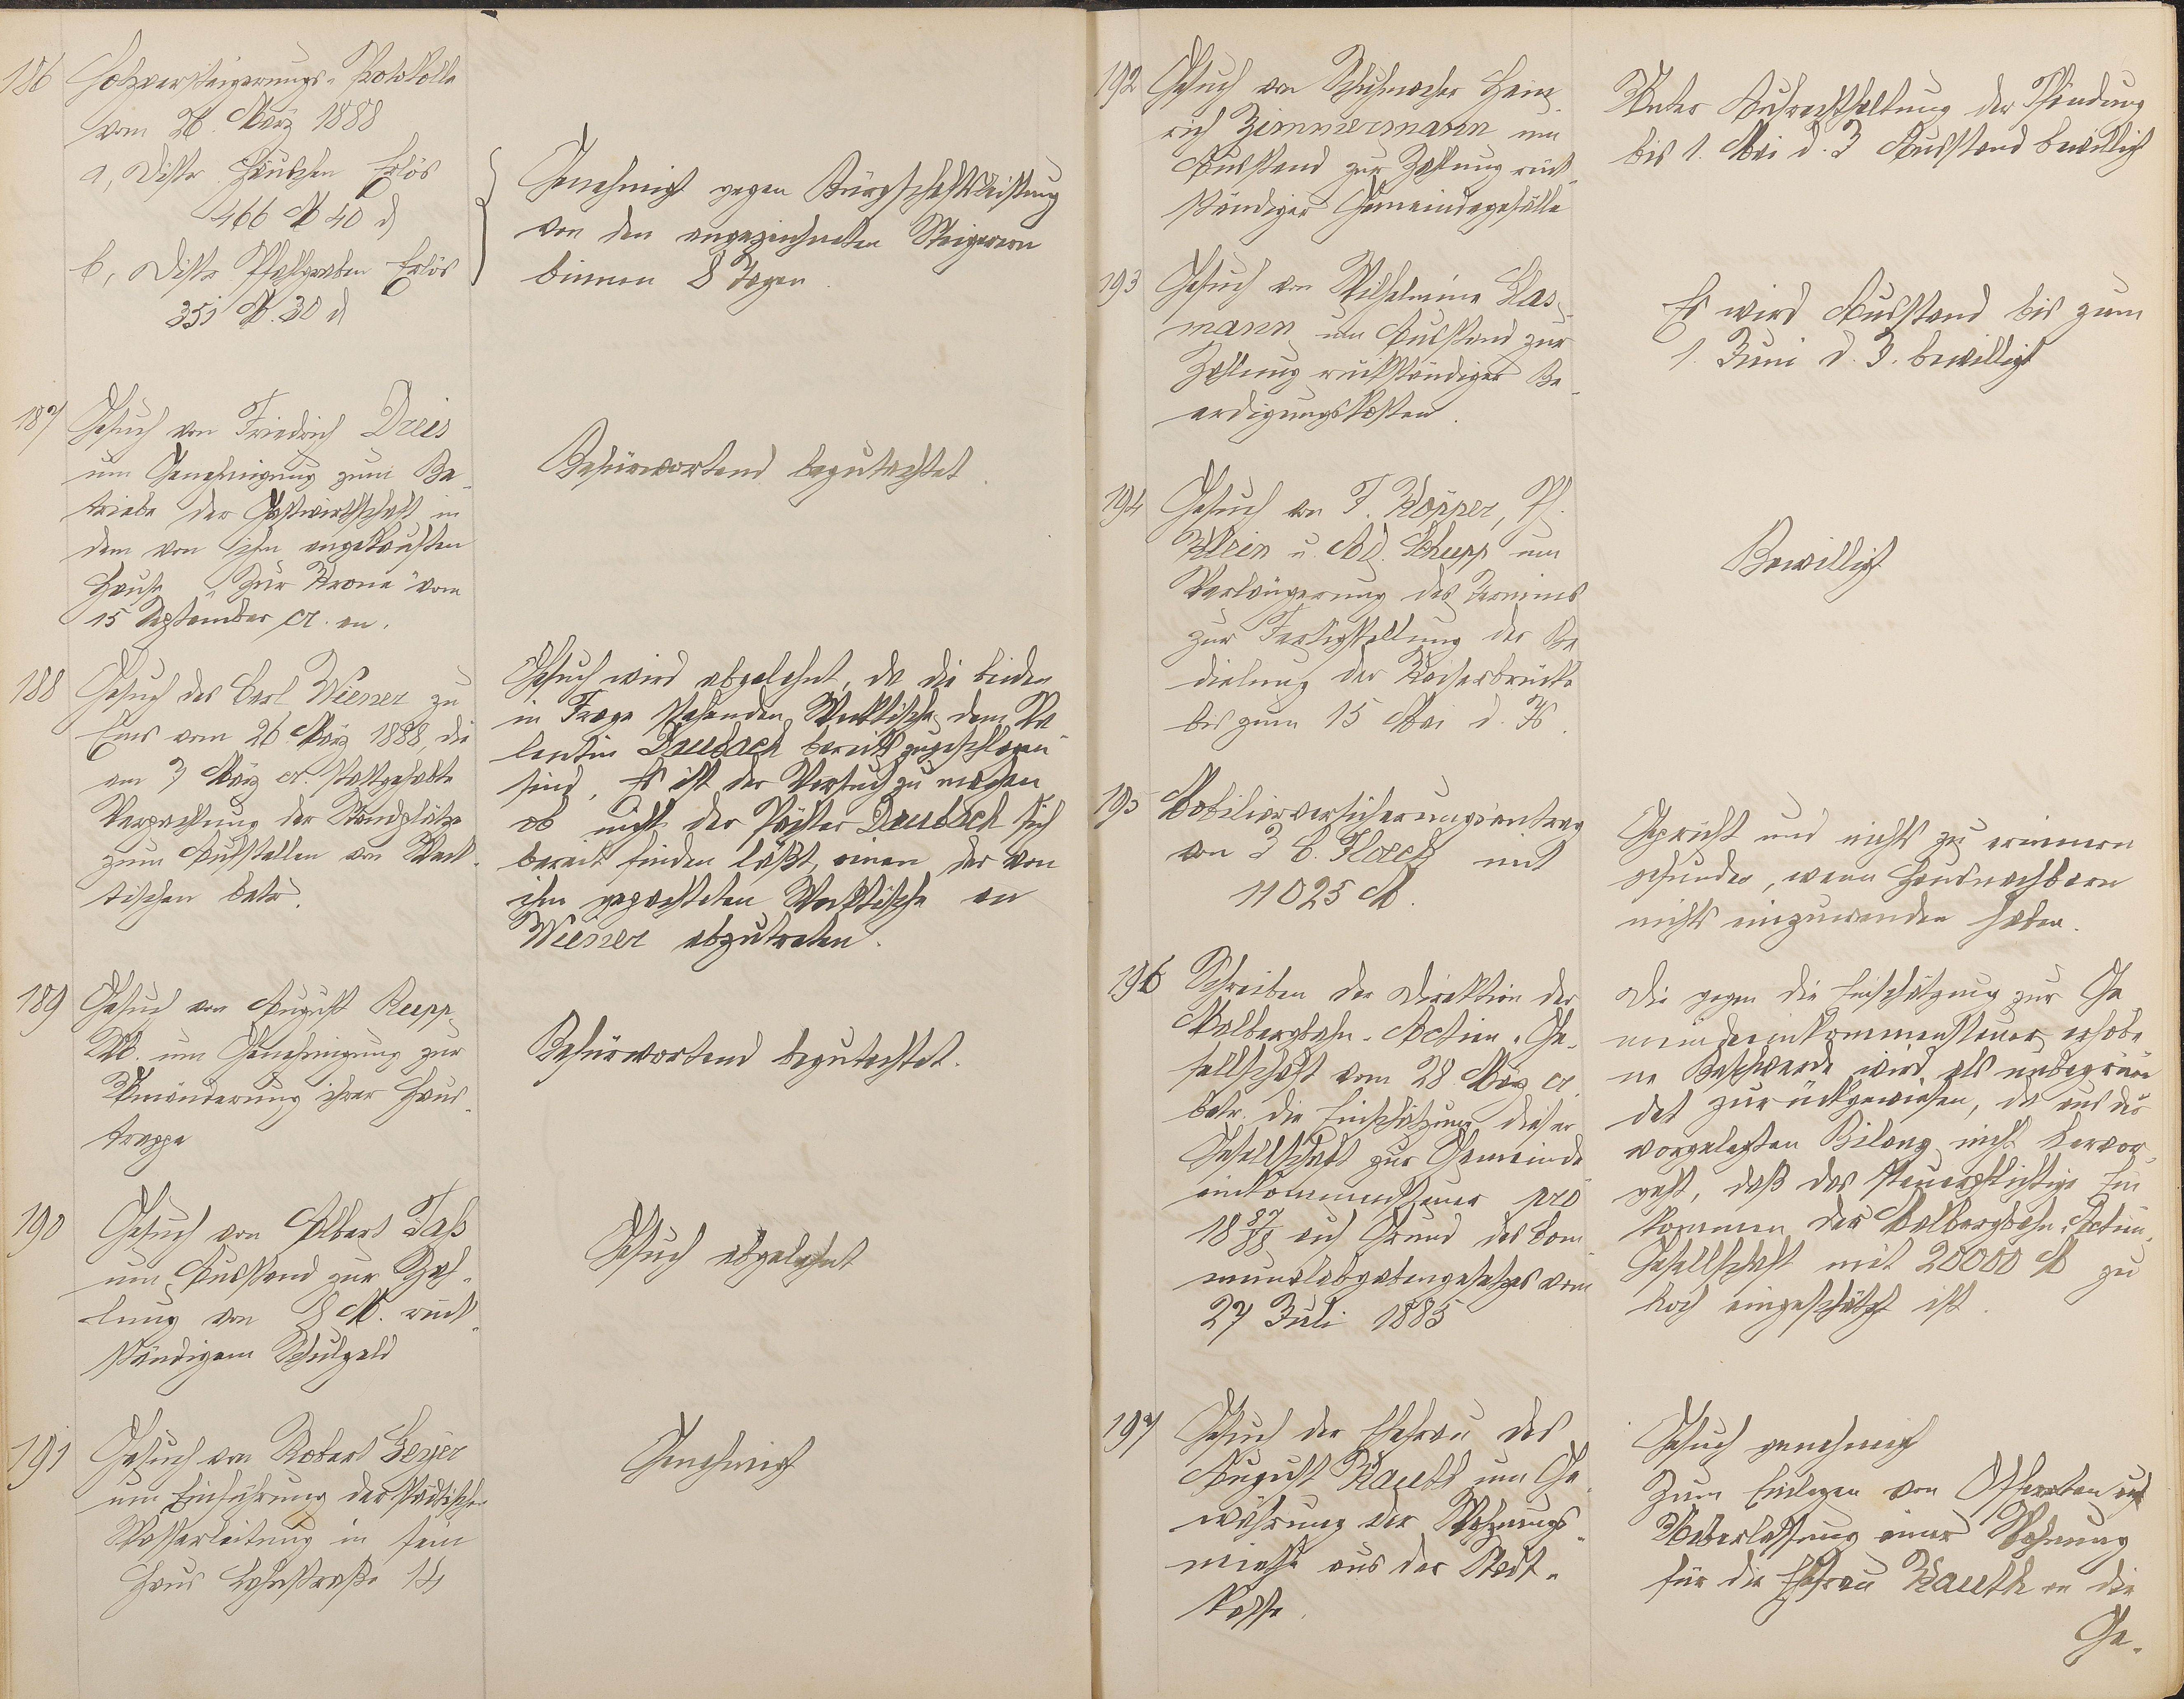 186 Holzversteigerungs-Protokolle
vom 26. März 1888
a, Distr. Häuschen Erlös
466 M 40 d
b, Distr. Pfahlgraben Erlös
351 M. 30 d
Genehmigt gegen Bürgschaftsleistung
von den angezeichneten Steigerern
binnen 8 Tagen.
187 Gesuch von Friedrich Dreis
um Genehmigung zum Be-
triebe der Gastwirthschaft in
dem von ihm angekauften
Hause „Zur Krone" vom
15 September cr. an.
Befürwortend begutachtet.
188 Gesuch des Carl Wiener zu
Ems vom 26. März 1888, die
am 7 März cr. stattgehabte
Verpachtung der Standplätze
zum Aufstellen von Werk-
tischen betr.
Gesuch wird abgelehnt, da die beiden
in Frage stehenden Werktische dem Va-
lentin Daubach bereits zugeschlagen
sind. Es ist der Versuch zu machen,
ob nicht der Pächter Daubach sich
bereit finden läßt, einen der von
ihm gepachteten Werktische an
Wiener abzutreten.
189 Gesuch von August Rupp
um Genehmigung zur
Veränderung ihrer Haus-
treppe
Befürwortend begutachtet.
190 Gesuch von Albert Faß
um Ausstand zur Zah-
lung von 8 M. rück-
ständigem Schulgeld
Gesuch abgelehnt
191 Gesuch von Robert Beyer
um Einführung der städtischen
Wasserleitung in sein
Haus Lahnstraße 14
Genehmigt
192 Gesuch von Schuhmacher Hein-
rich Zimmermann um
Ausstand zur Zahlung rück-
ständiger Gemeindegefälle
Unter Aufrechthaltung der Pfändung
bis 1. Mai d. J. Ausstand bewilligt
193 Gesuch von Wilhelmine Las-
mann um Ausstand zur
Zahlung rückständiger Be-
erdigungskosten.
Es wird Ausstand bis zum
1. Juni d. J. bewilligt
194 Gesuch von F. Köpper, Ph.
Klein u. Ad. Schupp um
Verlängerung des Termins
zur Fertigstellung der Be-
dielung der Kaiserbrücke
bis zum 15 Mai d. Js.
Bewilligt
195 Mobiliarversicherungsantrag
von J. C. Flöck mit
11025 M.
Geprüft und nichts zu erinnern
gefunden, wenn Hausnachbarn
nichts einzuwenden haben.
196 Schreiben der Direktion der
Malbergbahn-Actien-Ge-
sellschaft vom 28. März cr
betr. die Einschätzung dieser
Gesellschaft zur Gemeinde-
einkommensteuer pro
1887/88 auf Grund des Com-
munalabgabengesetzes vom
27 Juli 1885
Die gegen die Einschätzung zur Ge-
meindeeinkommensteuer erhobe-
ne Beschwerde wird als unbegrün-
det zurückgewiesen, da aus der
vorgelegten Bilanz nicht hervor-
geht, daß das steuerpflichtige Ein-
kommen der Malbergbahn-Actien-
Gesellschaft mit 20000 M zu
hoch eingeschätzt ist.
197 Gesuch der Ehefrau des
August Kauth um Ge-
währung der Wohnungs-
miethe aus der Stadt-
kasse.
Gesuch genehmigt
Zum Einlegen von Offerten auf
Ueberlassung einer Wohnung
für die Ehefrau Kauth an die
Ge-